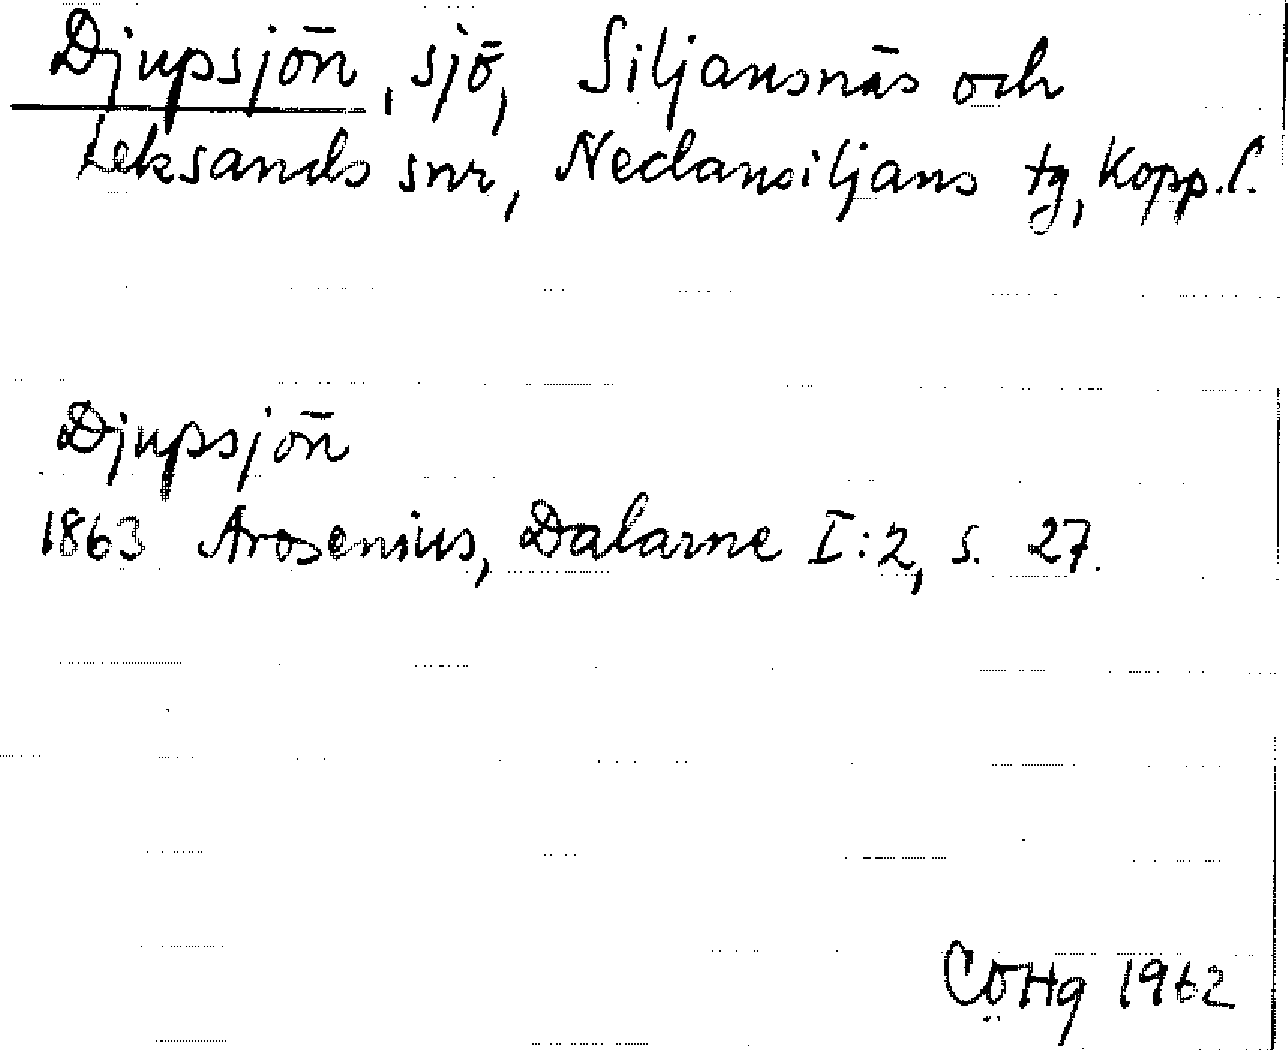 Djupsjön, sjö, Siljansnäs och
Leksands snr, Nedansiljans tg, Kopp. l.
Djupsjön
1863 Arosenius, Dalarne I:2, s. 27.
CÖHg 1962